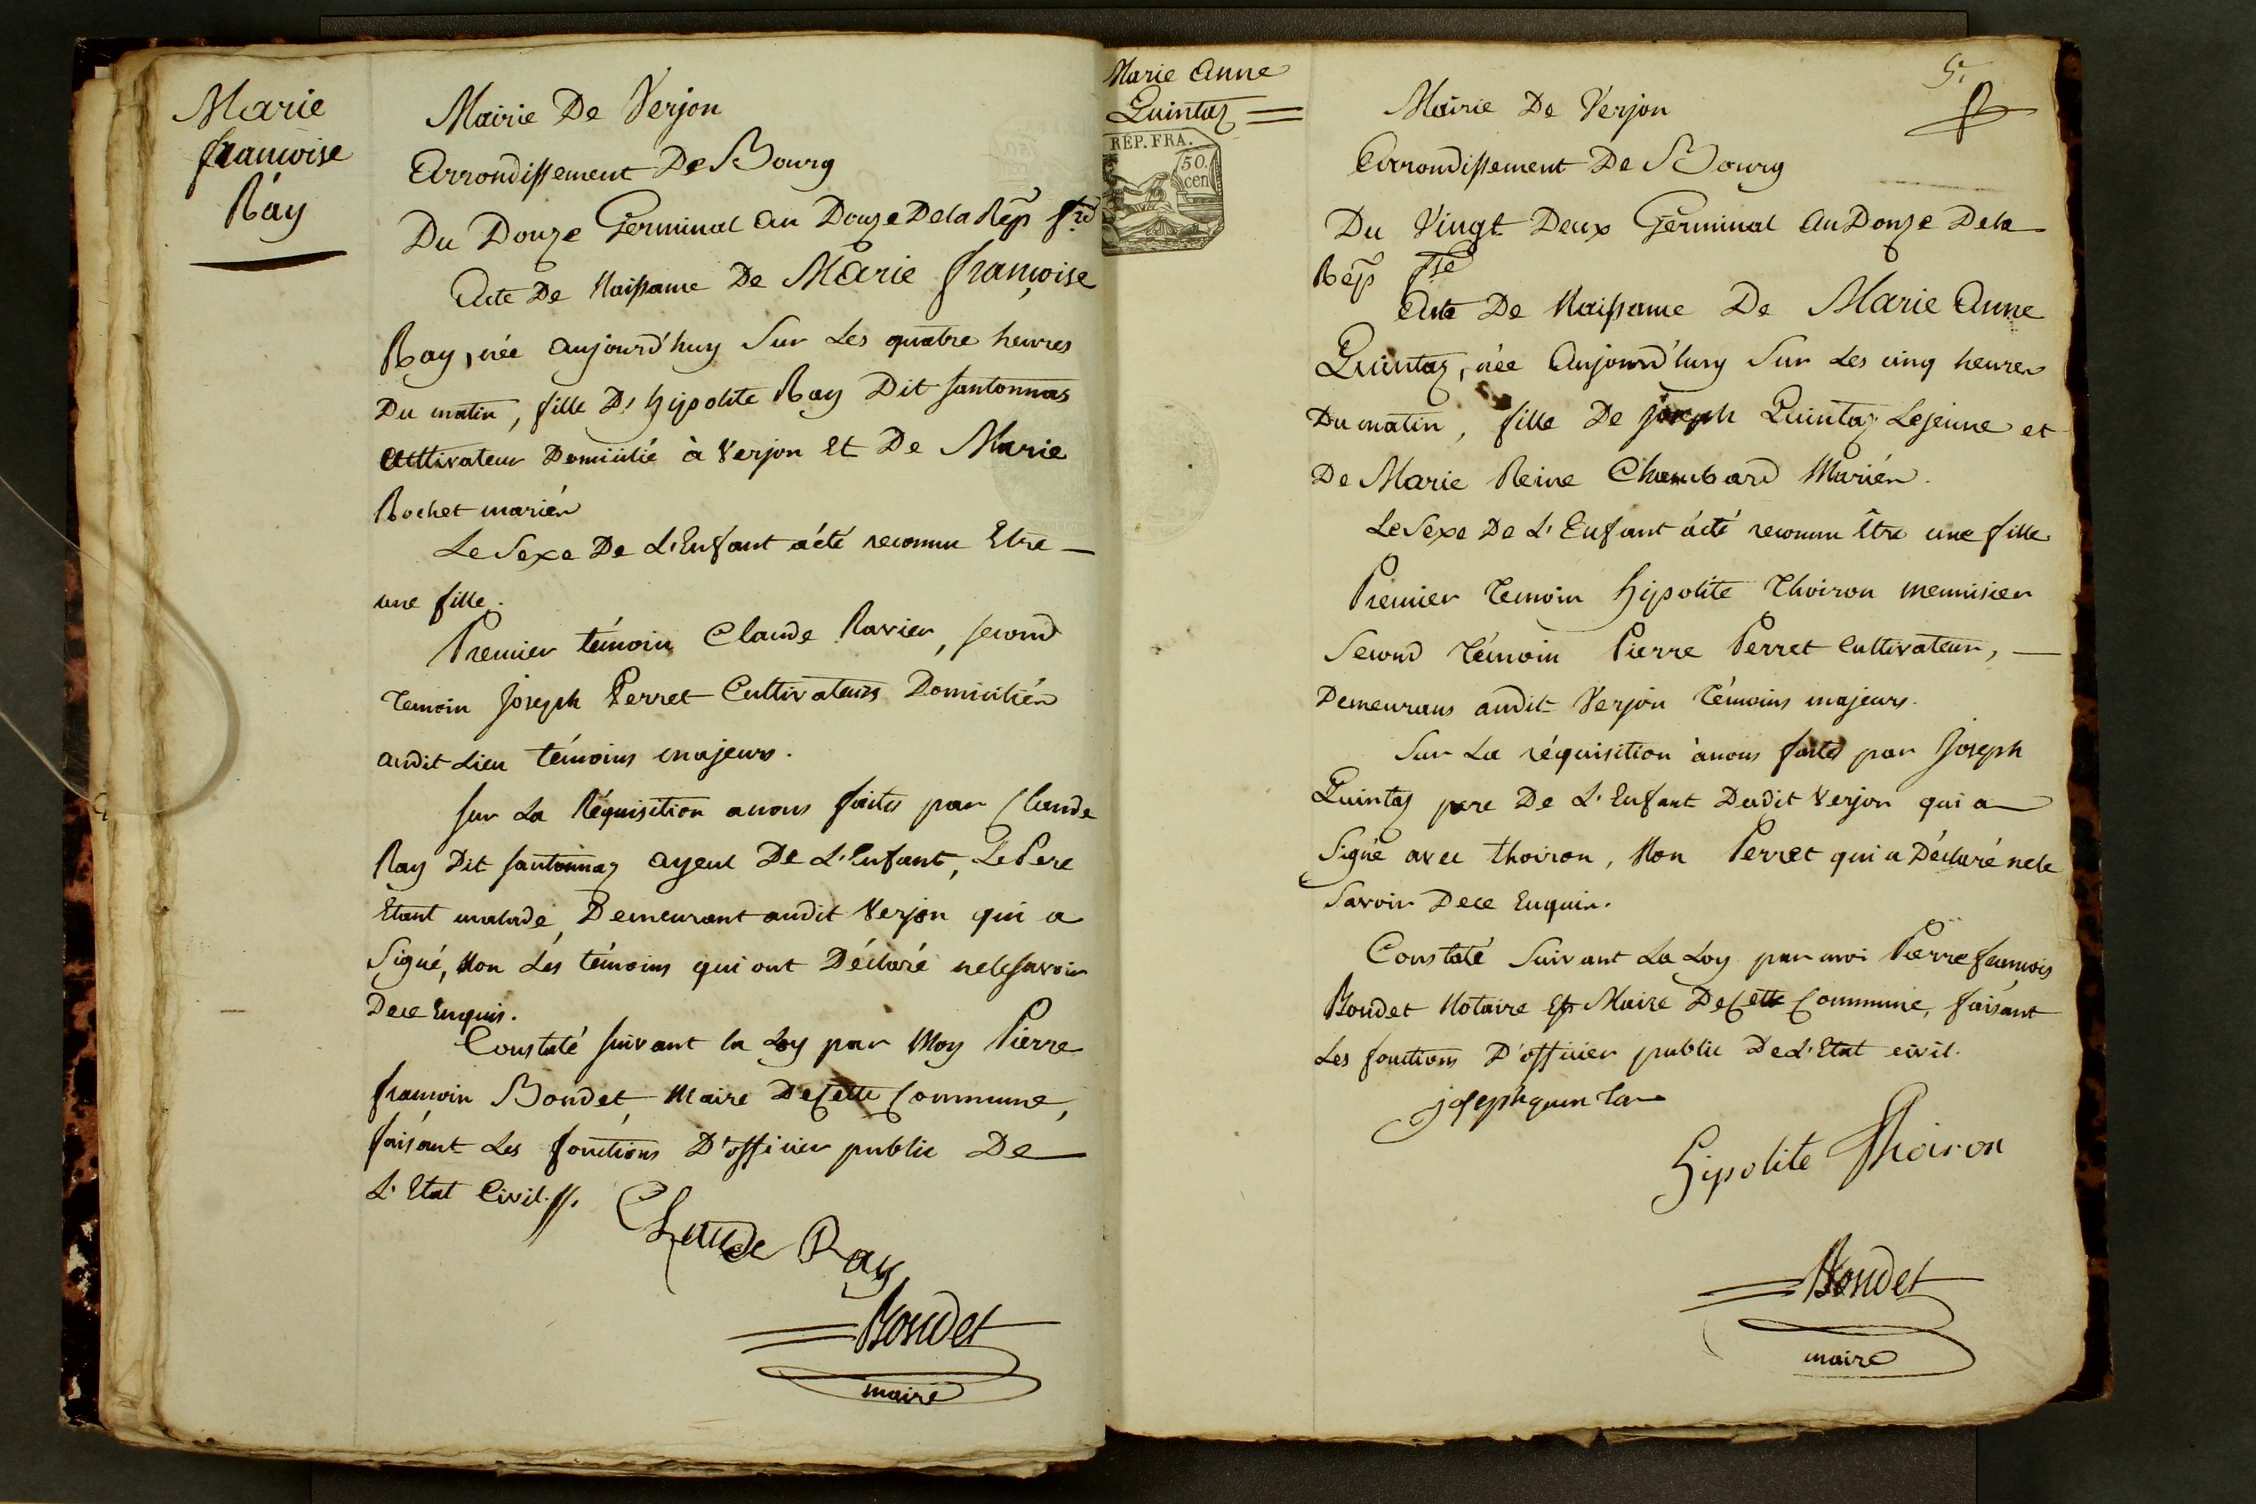 Marie
françoise
Ray
Mairie De Verjon
Arrondissement De Bourg
Du Douze Germinal an Douze De la Rép. frse
Acte De Naissance De Marie françoise
Ray, née aujourd'huy Sur Les quatre heures
Du matin, fille D'hypolite Ray Dit santonnas
Cultivateur Domicilié à Verjon Et De Marie
Rochet mariés
Le Sexe De L'Enfant a été reconnu Etre
une fille.
Premier témoin Claude Ravier, second
temoin Joseph Perret Cultivateurs Domiciliés
audit Lieu témoins majeurs.
sur La Réquisition a nous faites par Claude
Ray Dit santonnaz ayeul De L'Enfant, Le Pere
Etant malade, Demeurant audit Verjon qui a
Signé, Non Les témoins qui ont Déclaré ne le savoir
De ce Enquis.
Constaté suivant la Loy par Moy Pierre
françois Bondet Maire De Cette Commune,
faisant Les fonctions D'officier public De
L'Etat Civil.
Claude Ray
Bondet
maire
Marie Anne
Quintaz
REP. FRA.
50.
cen
5.
Mairie De Verjon
Arrondissement De Bourg
Du Vingt Deux Germinal An Douze De la
Rép frse
Acte De Naissance De Marie Anne
Quintaz, née Aujourd'huy Sur Les cinq heures
Du matin, fille De joseph Quintaz Lejeune et
De Marie Reine Chambard Mariés.
Le Sexe De L'Enfant a été reconnu Être une fille.
Premier Temoin Hipolite Thoiron menuisier
Second Témoin Pierre Perret Cultivateur,
Demeurans audit Verjon Témoins majeurs.
Sur La réquisition à nous faites par Joseph
Quintaz pere De L'Enfant Dudit Verjon qui a
Signé avec thoiron, Non Perret qui a Déclaré ne le
Savoir De ce Enquis.
Constaté Suivant La Loy par moi Pierre françois
Bondet Notaire Et Maire De Cette Commune, faisant
Les fonctions D'officier public De L'Etat civil.
joseph quinta
Hipolite Thoiron
Bondet
maire